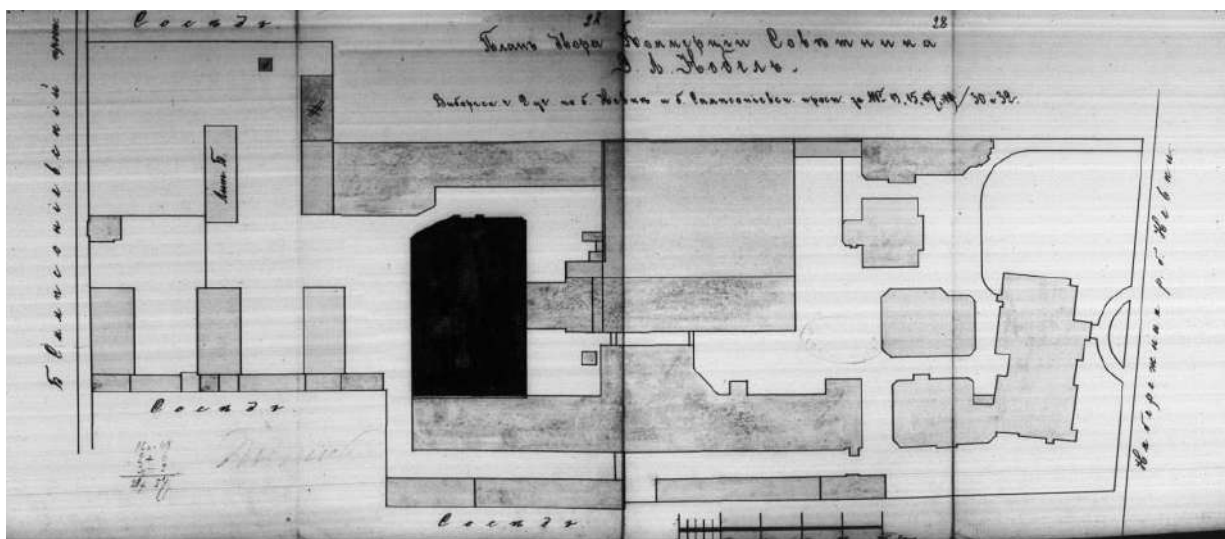 Соседъ
28
28
Планъ двора Коммерціи Совѣтника
Э. Л. Нобель.
Выборгск. ч. 2 уч. по б. Невкѣ и б. Сампсоніевск. просп. за №№ 13, 15, 17, 19 / 30 и 32.
Б. Сампсоніевскій просп.
Лит. Б.
Соседъ
Набережная р. Б. Невки
Соседъ